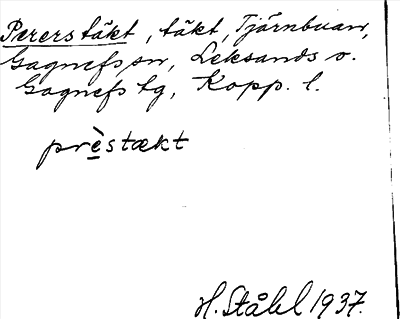 Perers täkt, täkt, Tjärnbuan,
Gagnefs sn, Leksands o.
Gagnefs tg, Kopp. l.
prè̱stækt
H. Ståhl 1937.